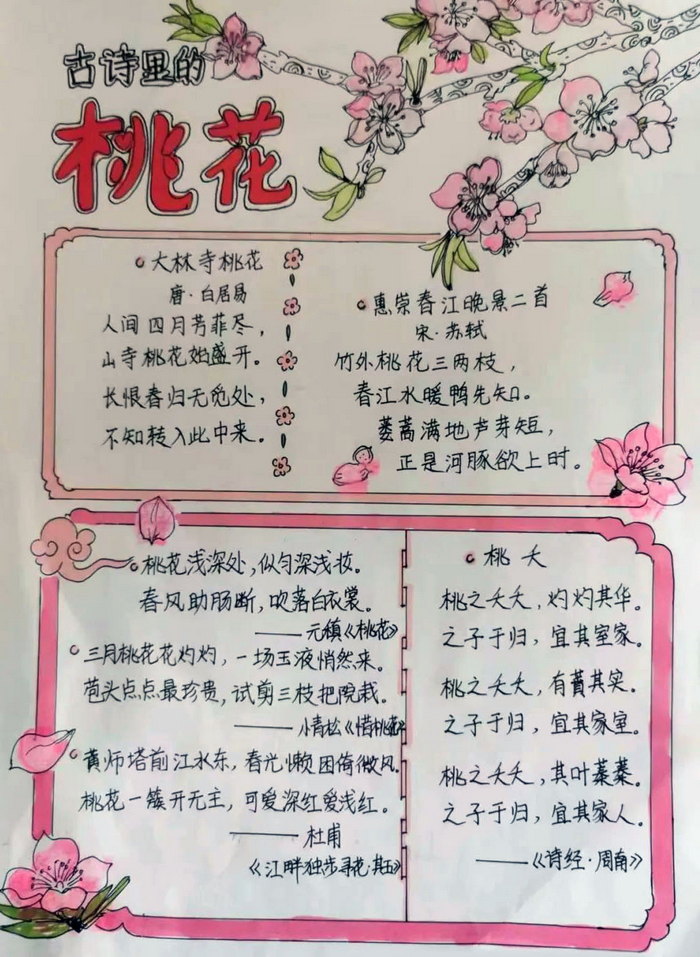 古诗里的
桃花
大林寺桃花
唐·白居易
人间四月芳菲尽，
山寺桃花始盛开。
长恨春归无觅处，
不知转入此中来。
惠崇春江晚景二首
宋·苏轼
竹外桃花三两枝，
春江水暖鸭先知。
蒌蒿满地芦芽短，
正是河豚欲上时。
桃花浅深处，似匀深浅妆。
春风助肠断，吹落白衣裳。
——元稹《桃花》
三月桃花花灼灼，一场玉液悄然来。
苞头点点最珍贵，试剪三枝把院栽。
——小青松《惜桃花》
黄师塔前江水东，春光懒困倚微风。
桃花一簇开无主，可爱深红爱浅红。
——杜甫
《江畔独步寻花·其五》
桃夭
桃之夭夭，灼灼其华。
之子于归，宜其室家。
桃之夭夭，有蕡其实。
之子于归，宜其家室。
桃之夭夭，其叶蓁蓁。
之子于归，宜其家人。
——《诗经·周南》